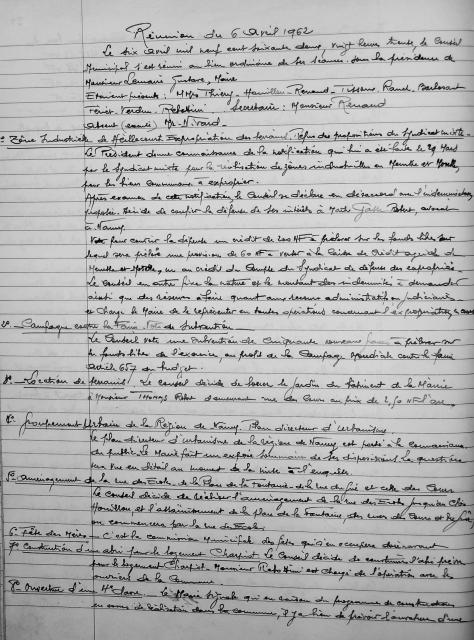 Réunion du 6 avril 1962
Le six avril mil neuf cent soixante deux, vingt heures trente, le Conseil
Municipal s'est réuni au lieu ordinaire de ses séances sous la présidence de
Monsieur Lemaire Gustave, Maire
Etaient présents : MMrs Thiéry - Hanillon - Renaud -
Secrétaire : Monsieur Renaud
absent (excusé) Mr
Zône Industrielle de Heillecourt Expropriation des terrains. des propositions du Syndicat mixte -
Le Président donne connaissance de la notification qui lui a été faite le 29 Mars
par le Syndicat mixte pour la réalisation de zônes industrielles en Meurthe et Moselle,
pour les biens communaux à exproprier.
Après examen de cette notification, le Conseil se déclare en désaccord avec l'indemnisation
proposée. Décide de confier la défense de ses intérêts à Maître avocat
à Nancy.
Vote pour couvrir la défense un crédit de 200 NF à prélever sur les fonds libres sur
lequel sera prélevé une provision de 60 NF à verser à la Caisse de Crédit agricole de
Meurthe et Moselle, en un crédit du Compte du Syndicat de défense des expropriés.
Le Conseil en outre fixe la nature et le montant des indemnités à demander
ainsi que des réserves à faire quant aux recours administratifs judiciaires
et charge le Maire de le représenter en toutes opérations concernant l'expropriation en cours
2° - Campagne contre la Faim - Vote de subvention -
Le Conseil vote une subvention de Cinquante nouveaux francs à prélever sur
les fonds libres de l'exercice, au profit de la Campagne Mondiale contre la faim
article 657 du budget.
3° - Location de terrain. Le Conseil décide de louer le jardin du bâtiment de la Mairie
à Monsieur THOMAS demeurant rue des Cours au prix de 2,50 NF l'are.
4° Groupement Urbain de la Région de Nancy. Plan directeur d'Urbanisme.
Le plan directeur d'urbanisme de la région de Nancy est porté à la connaissance
du public. Le Maire fait un exposé sommaire de ses dispositions. La question
sera vue en détail au moment de la mise à l'enquête.
5° aménagement de la rue des Ecoles, de la Place de la Fontaine, de la rue du et celle des Cours
Le Conseil décide de réaliser l'aménagement de la rue des Ecoles jusqu'au Clos
Hanillon et l'assainissement de la place de la Fontaine, des rues des Cours et
en commençant par la rue des Ecoles.
6° Fête des Mères - C'est la commission Municipale des fêtes qui s'en occupera dorénavant
7° Construction d'un abri pour le logement Charpiot Le Conseil décide de construire l'abri prévu
pour le logement Charpiot Monsieur est chargé de l'opération avec les
ouvriers de la Commune.
8° Ouverture d'une 4e classe. Le Maire signale qu'en raison du programme de construction
en cours de réalisation dans la commune, il y a lieu de prévoir l'ouverture d'une